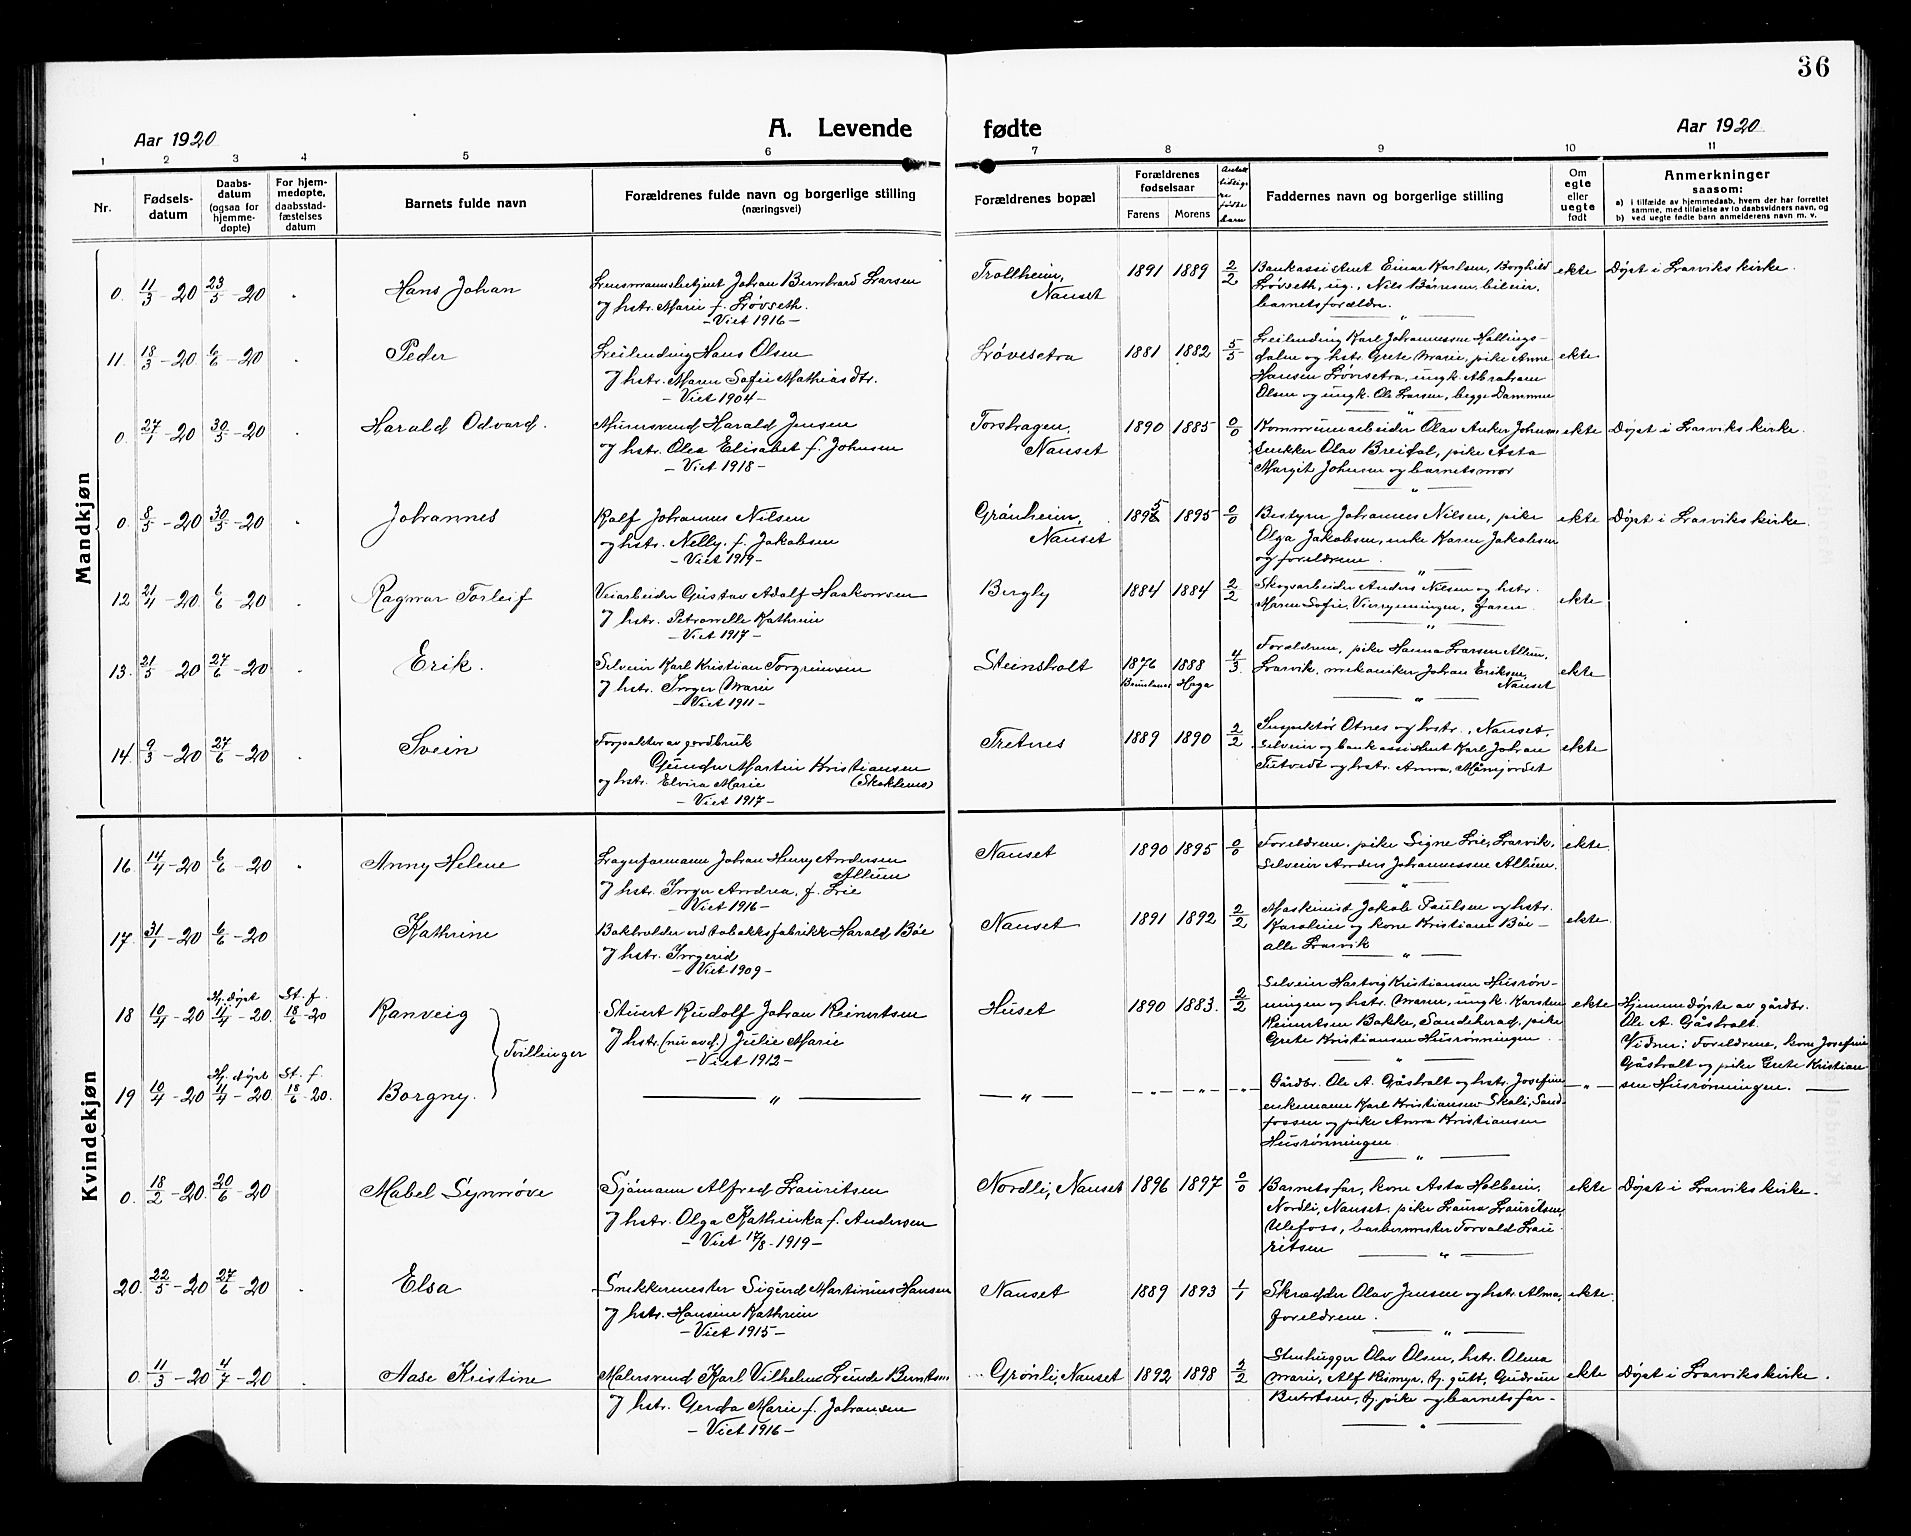 36
Aar 1920
A. Levende
fødte
Aar 1920
1 2 3 4 5 6 7 8 9 10 11
Nr.
Fødsels-
datum
Daabs-
datum
(ogsaa for
hjemme-
døpte)
For hjem-
medøpte,
daabsstad-
fæstelses
datum
Barnets fulde navn
Forældrenes fulde navn og borgerlige stilling
(næringsvei)
Forældrenes bopæl
Forældrenes
fødselsaar
Farens Morens
Faddernes navn og borgerlige stilling
Om
egte
eller
uegte
født
Anmerkninger
saasom:
a) i tilfælde av hjemmedaab, hvem der har forrettet
samme, med tilføielse av to daabsvidners navn, og
b) ved uegte fødte barn anmelderens navn m. v.
Mandkjøn
0. 11/3-20 23/5-20 Hans Johan
Lensmannsbetjent Johan Bernhard Larsen
J hstr. Marie f. Løvseth.
- Viet 1916 -
Trollheim,
Nanset
1891 1889 2/2
Bankassistent Einar Karlsen, Borghild
Løvseth, ug., Nils Børresen, bileier,
barnets forældre.
ekte Døpt i Larviks kirke.
11. 18/3-20 6/6-20 Peder
Leilending Hans Olsen
J hstr. Maren Sofie Mathiasdtr.
- Viet 1904 -
Løvesetra
1881 1882 5/5
Leilending Karl Johannessen Hallings-
dalen og hstr. Grete Marie, pike Anne
Hansen Løvesetra, ungk. Abraham
Olsen og ungk. Ole Larsen, begge Dammen
ekte
0. 27/1-20 30/5-20 Harald Odvard.
Murersvend Harald Jensen
og hstr. Olea Elisabet f. Johnsen
- Viet 1918 -
Torshagen,
Nanset
1890 1885 0/0
Kommunearbeider Olav Anker Johnsen
snekker Olav Breidal, pike Asta
Margit Johnsen og barnets mor
ekte Døpt i Larviks kirke.
0. 8/5-20 30/5-20 Johannes
Rolf Johannes Nilsen
og hstr. Nelly, f. Jakobsen
- Viet 1919 -
Grånheim,
Nanset
1895 1895 0/0
Bestyrer Johannes Nilsen, pike
Olga Jakobsen, enke Karen Jakobsen
og foreldrene.
ekte Døpt i Larviks kirke.
12 21/4-20 6/6-20 Ragnar Torleif
Veiarbeider Gustav Adolf Haakonsen
J hstr. Petronelle Kathrine
- Viet 1917 -
Bergly
1884 1884 2/2
Skogsarbeider Anders Nilsen og hstr.
Maren Sofie, Vierrynningen,
ekte
13. 21/5-20 27/6-20 Erik.
Selveier Karl Kristian Torgrimsen
J hstr. Inger Marie
- Viet 1911 -
Steinsholt
1876 1888 4/3
Brunlanes Haga
Foreldrene, pike Hanna Larsen Allum,
Larvik, mekaniker Johan Eriksen,
Nanset
ekte
14. 9/3-20 27/6-20 Svein
Forpakter av gårdbruk
Gunder Martin Kristiansen
og hstr. Elvira Marie
- Viet 1917 -
Tretnes
1889 1890 2/2
Inspektør Otnes og hstr., Nanset,
selveier og bankassistent Karl Johan
Tutvedt og hstr. Anna, Månejordet
ekte
Kvindekjøn
16 14/4-20 6/6-20 Anny Helene
Lagerformann Johan Henry Andersen
Allum
J hstr. Inger Andrea, f. Lie
- Viet 1916 -
Nanset
1890 1895 0/0
Foreldrene, pike Signe Lie, Larvik,
Selveier Anders Johannessen Allum.
ekte
17. 31/1-20 6/6-20 Kathrine
Bokholder ved tobakksfabrikk Harald Bøe
J hstr. Ingerid
- Viet 1909 -
Nanset
1891 1892 2/2
Maskinist Jakob Paulsen og hstr.
Karoline og kone Kristiane Bøe -
alle Larvik
ekte
18 10/4-20 Hj. døpt 11/4-20. St. f. 18/6-20 Ranveig
Tvillinger
Stuert Rudolf Johan Reinertsen
J hstr. (nu avd.) Julie Marie
- Viet 1912 -
Huset
1890 1883. 2/2
Selveier Hartvig Kristiansen Husrøn-
ningen og hstr. Maren, ungk. Karsten
Reinertsen Bakke, Sandeherad, pike
Grete Kristiansen Husrønningen.
ekte
Hjemmedøpte av gårdbr.
Ole A. Gåsholt.
Vidner: Foreldrene, kone Josefine
Gåsholt og pike Grete Kristian
sen Husrønningen.
19 10/4-20 Hj. døpt 11/4-20 St. f. 18/6-20. Borgny.
— " — — " — - " - - " - - " -
Gårdbr. Ole A. Gåsholt og hstr. Josefine
enkemann Karl Kristiansen Skoli, Sand-
fossen og pike Anna Kristiansen
Husrønningen.
— " —
0. 18/2-20. 20/6-20 Mabel Synnøve
Sjømann Alfred Lauritsen
J hstr. Olga Kathinka f. Andersen
- Viet 17/8-1919 -
Nordli, Nanset
1896 1897 0/0
Barnets far, kone Asta Holbein,
Nordli, Nanset, pike Laura Lauritsen,
Ulefoss, barbermester Torvald Lau-
ritsen
ekte Døpt i Larviks kirke.
20. 22/5-20 27/6-20 Elsa
Snekkermester Sigurd Martinius Hansen
J hstr. Hansine Kathrine
- Viet 1915 -
Nanset
1889 1893 1/1
Skrædder Olav Jensen og hstr. Alma,
foreldrene.
ekte
0. 11/3-20 4/7-20 Aase Kristine
Malersvend Karl Vilhelm Lunde Berntsen
J hstr. Gerda Marie f. Johansen
- Viet 1916 -
Grønli, Nanset
1892 1898 2/2
Stenhugger Olav Olsen, hstr. Alma
Marie, Alf Reimyr, tj. gutt, Gudrun
Berntsen, tj. pike og barnets far -
ekte Døpt i Larviks kirke.